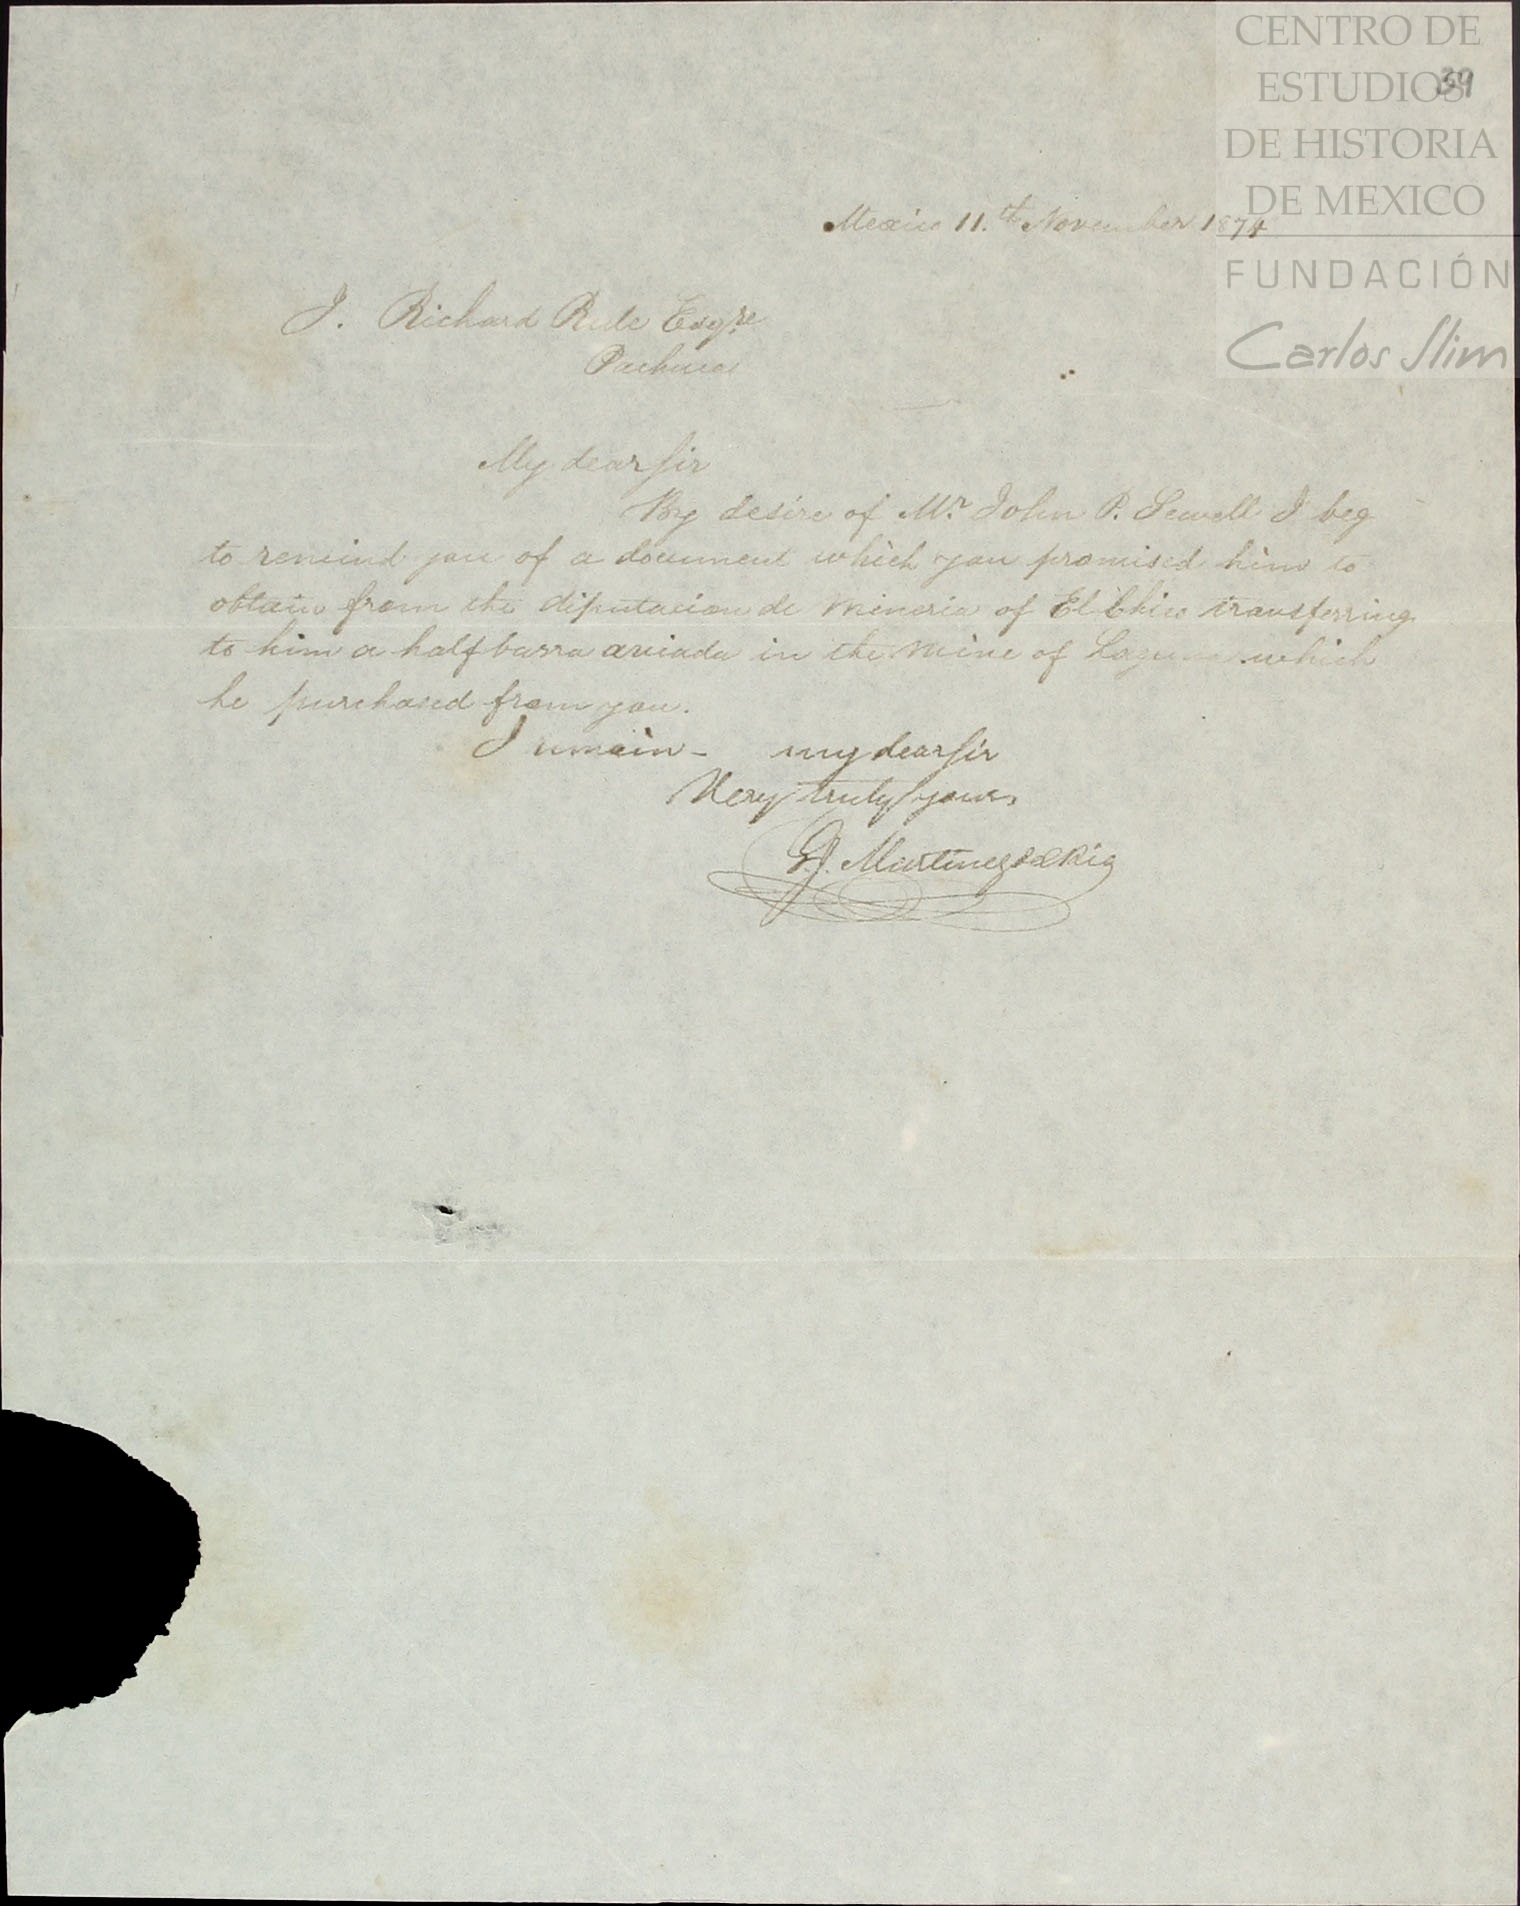 CENTRO DE
ESTUDIOS
DE HISTORIA
DE MEXICO
FUNDACIÓN
Carlos Slim
39
Mexico 11.th November 1874
J. Richard Rule Esqre
Pachuca
My dear Sir
By desire of Mr. John P. Sewell I beg
to remind you of a document which you promised him to
obtain from the diputacion de Mineria of El Chico transferring
to him a half barra aviada in the Mine of which
he purchased from you.
I remain - my dear Sir
Very truly yours
G. J. Martinez del Rio